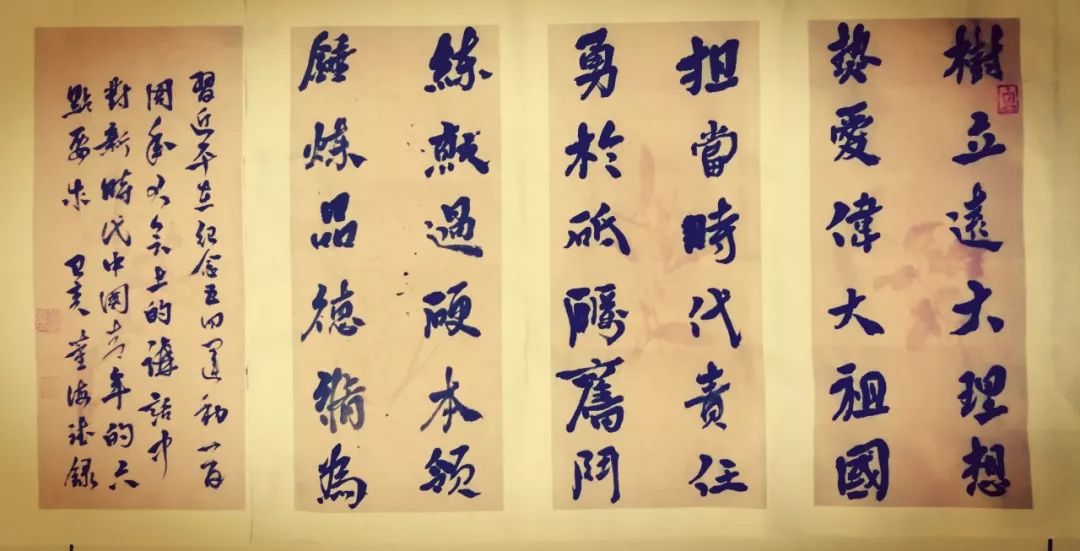 樹立遠大理想
热愛偉大祖國
担當時代責任
勇於砥礪奮鬥
練就過硬本領
錘煉品德脩為
習近平在紀念五四運動一百
周年大會上的講話中
對新時代中國青年的六
點要求 己亥 董海 錄